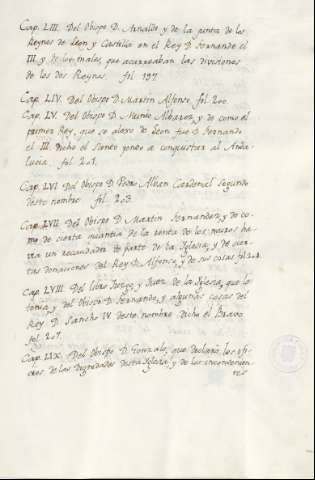 Cap. LIII. Del Obispo D. Arnaldo y de la junta de los
Reynos de Leon y Castilla en el Rey D. Fernando el
III. y de los males, que acarreaban las divisiones
de los dos Reynos. fol. 197
Cap. LIV. Del Obispo D. Martin Alfonso fol. 200.
Cap. LV. Del Obispo D. Munio Albarez, y de como el
primer Rey, que se alavo de Leon fue D. Fernando
el III. dicho el Santo yendo a conquistar al Anda-
lucia. fol. 201.
Cap. LVI. Del Obispo D. Pedro, Alvan Cardenal segundo
deste nombre. fol. 203.
Cap. LVII. Del Obispo D. Martin Fernandez, y de co-
mo de cierta quantia de la renta de los muros ha-
via un recaudador de parte de la Iglesia, y de cier-
tas donaciones del Rey D. Alfonso, y de sus cosas fol. 204.
Cap. LVIII. Del libro Juzgo, y Juez de la Iglesia, que lo
tenia, y del Obispo D. Fernando, y algunas cosas del
Rey D. Sancho IV. deste nombre dicho el Bravo
fol. 207.
Cap. LIX. Del Obispo D. Gonzalo, que declaró los ofi-
cios de las Dignidades desta Iglesia, y de los inconvenien-
tes